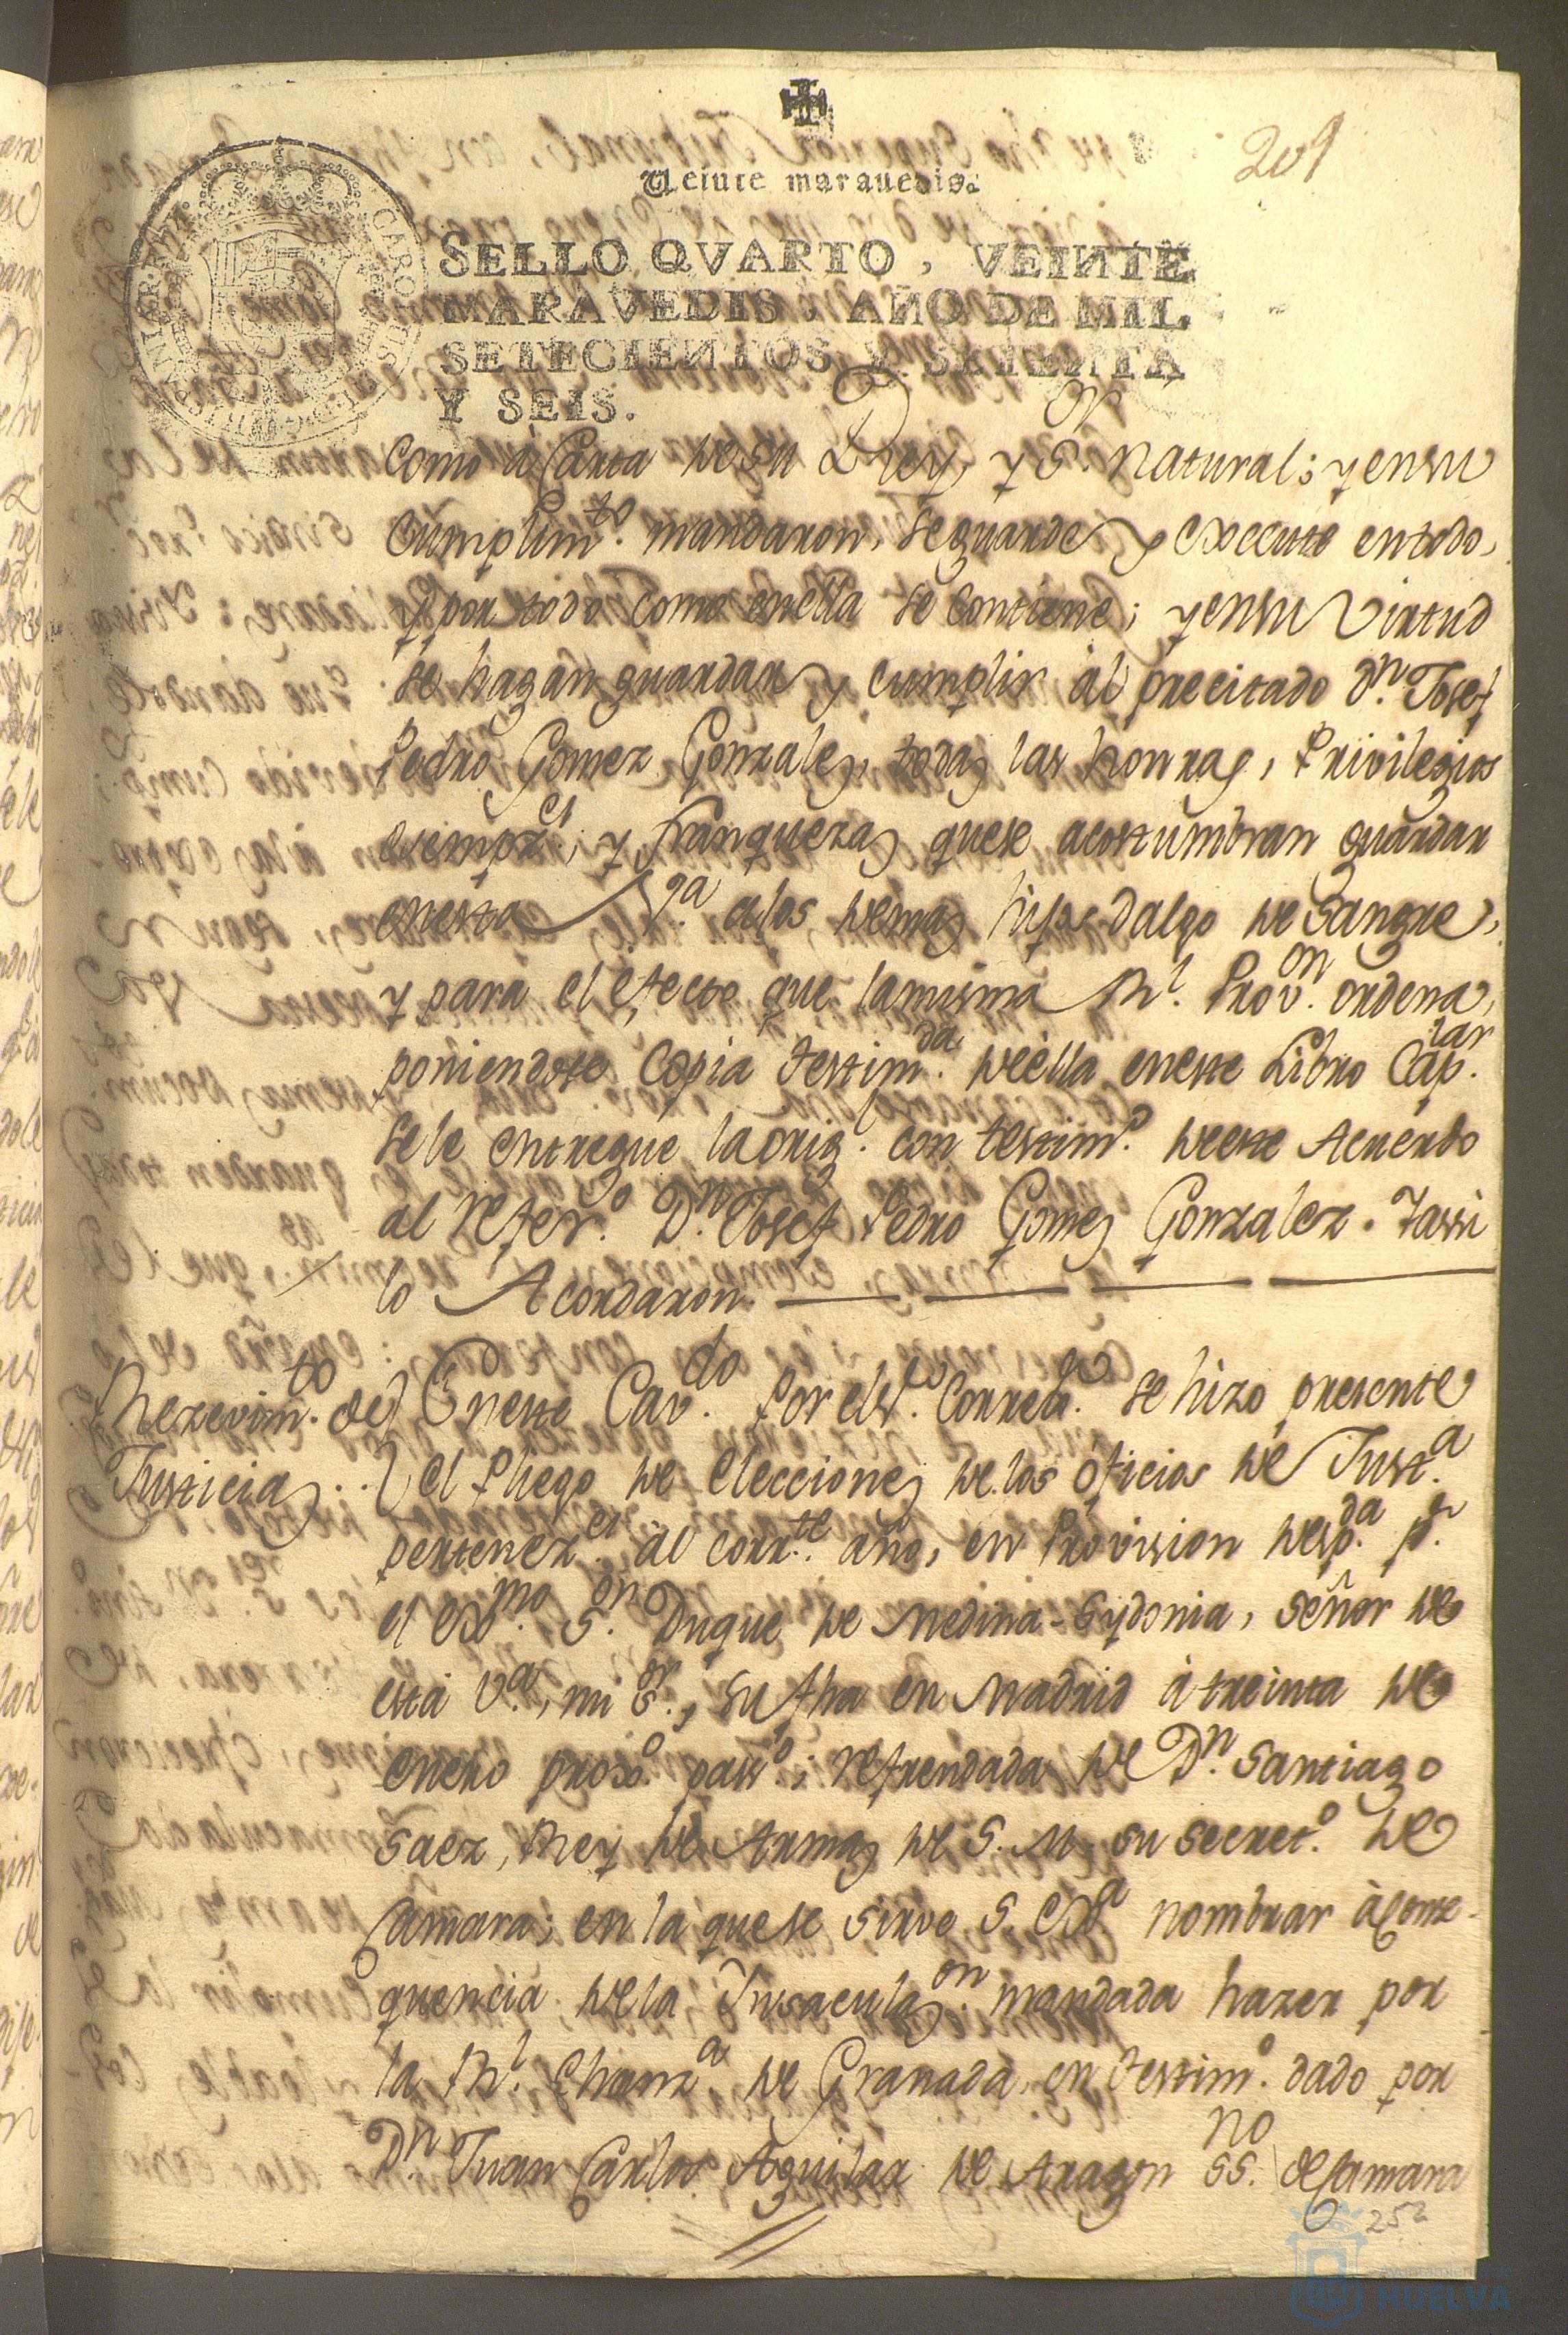 209
Veinte maravedis.
SELLO QVARTO, VEINTE
MARAVEDIS, AÑO DE MIL
SETECIENTOS Y SETENTA
Y SEIS.
como à Carta de su Rey, y Sor. natural; y en su
cumplimto. mandaron, se guarde y execute en todo,
y por todo como en ella se contiene; y en su virtud
se hagan guardar y cumplir àl precitado Dn. Josef
Pedro Gomez Gonzalez, todas las honrras, Privilegios
exempzes., y franquezas que se acostumbran guardar
en esta Va. a los demas hijosdalgo de Sangre,
y para el efecto que la misma Rl. Provon. ordena,
poniendose Copia testimda. de ella en este Libro Caplar.
se le entregue la orig. con testimo. de este Acuerdo
al refero. Dn. Josef Pedro Gomez Gonzalez. Y assi
lo Acordaron.
Rezevimto. de
Justicias..
En este Cavdo. por el Sr. Corregr. se hizo presente
el Pliego de Elecciones de los oficios de Justa.
pertenezes. al corrte. año, en Provision despda. pr.
el Exmo. Sor. Duque de Medina-Sydonia, señor de
esta Va., mi Sr., su fha en Madrid à treinta de
enero proxo. passo.; refrendada de Dn. Santiago
Saez, Rey de Armas de S. M. su secreto. de
Camara; en la que se sirve S. Exa. nombrar à conse-
quencia de la Insaculazon. mandada hazer por
la Rl. Chanza. de Granada, en testimo. dado por
Dn. Juan Carlos Aguilar de Aragon ssno. de Camara
252
Ayuntamiento de
HUELVA